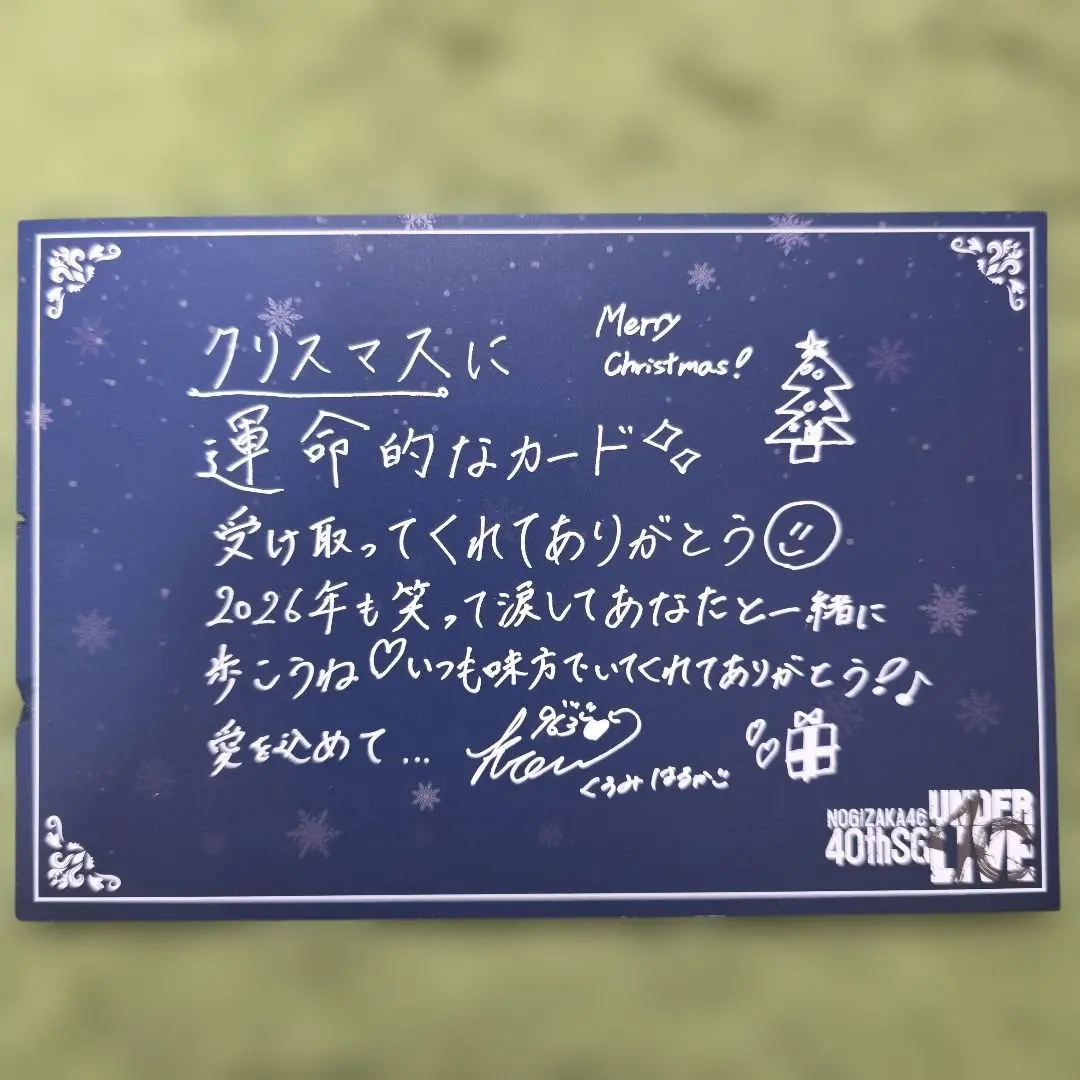 クリスマスに
Merry
Christmas!
運命的なカード
受け取ってくれてありがとう
2026年も笑って涙してあなたと一緒に
歩こうね♡いつも味方でいてくれてありがとう!♪
愛を込めて...
963
くろみ はるか
NOGIZAKA46
40thSG
UNDER
LIVE